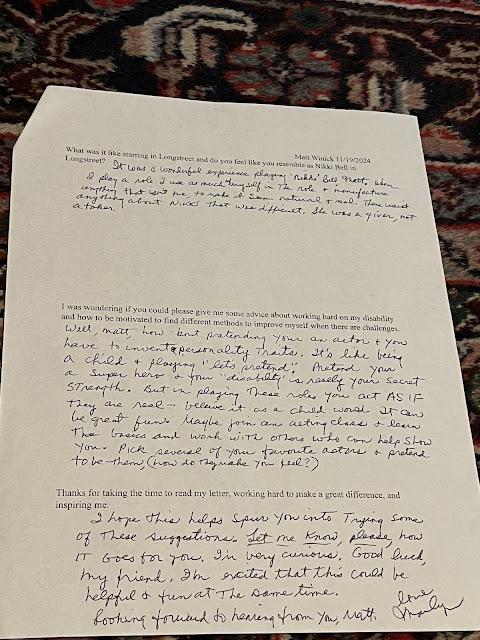 Matt Winick 11/19/2024
What was it like starring in Longstreet and do you feel like you resemble as Nikki Bell in
Longstreet? It was a wonderful experience playing "Nikki" Bell, Matt. When
I play a role I use as much of myself in the role & manufacture
anything that isn't me to make it seem natural & real. There wasn't
anything about Nikki that was difficult. She was a giver, not
a taker.
I was wondering if you could please give me some advice about working hard on my disability
and how to be motivated to find different methods to improve myself when there are challenges.
Well, Matt, how 'bout pretending your an actor & you
have to invent a personality traits. It's like being
a child & playing "let's pretend". Pretend your
a super hero & your "disability" is really your secret
STRENGTH. But in playing these roles you act AS IF
they are real – beleive it as a child would. It can
be great fun. Maybe join an acting class & learn
the basics and work with others who can help show
you. Pick several of your favorite actors & pretend
to be them (how do they make you feel?)
Thanks for taking the time to read my letter, working hard to make a great difference, and
inspiring me.
I hope this helps spur you into trying some
of these suggestions. Let me know, please, how
IT goes for you. I'm very curious. Good luck,
my friend. I'm excited that this could be
helpful & fun at the same time.
Looking forward to hearing from you, Matt.
love